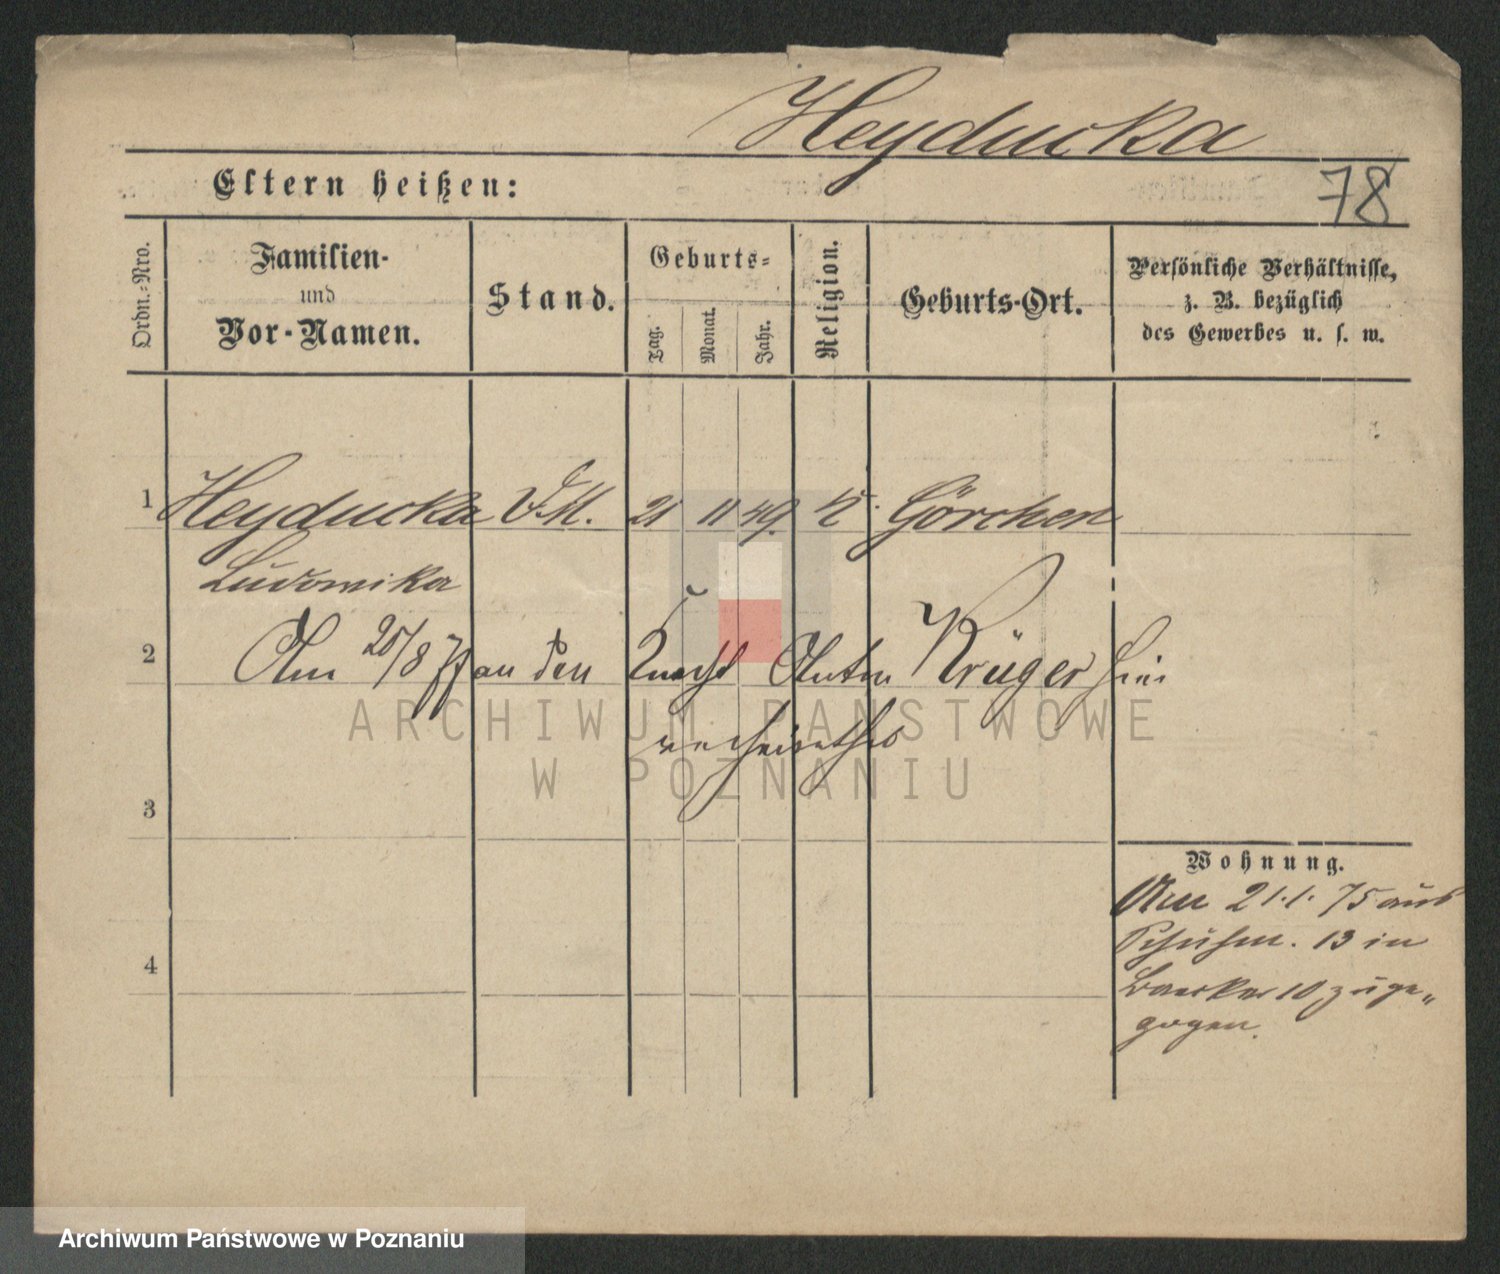 Heyducka
Eltern heißen:
78
Ordn.-Nro.
Familien-
und
Vor-Namen.
Stand.
Geburts-
Tag.
Monat.
Jahr.
Religion.
Geburts-Ort.
Persönliche Verhältnisse,
z. B. bezüglich
des Gewerbes u. s. w.
1 Heyducka D.M. 21 11 49. k. Görchen
Ludowika
2 Am 20/8 77 an den Knecht Anton Krüger hier
verheirathet
3
4
Wohnung.
Am 21.1.75 aus
Schuhm. 13 in
Baecker 10 zuge-
zogen.
ARCHIWUM PAŃSTWOWE
W POZNANIU
Archiwum Państwowe w Poznaniu